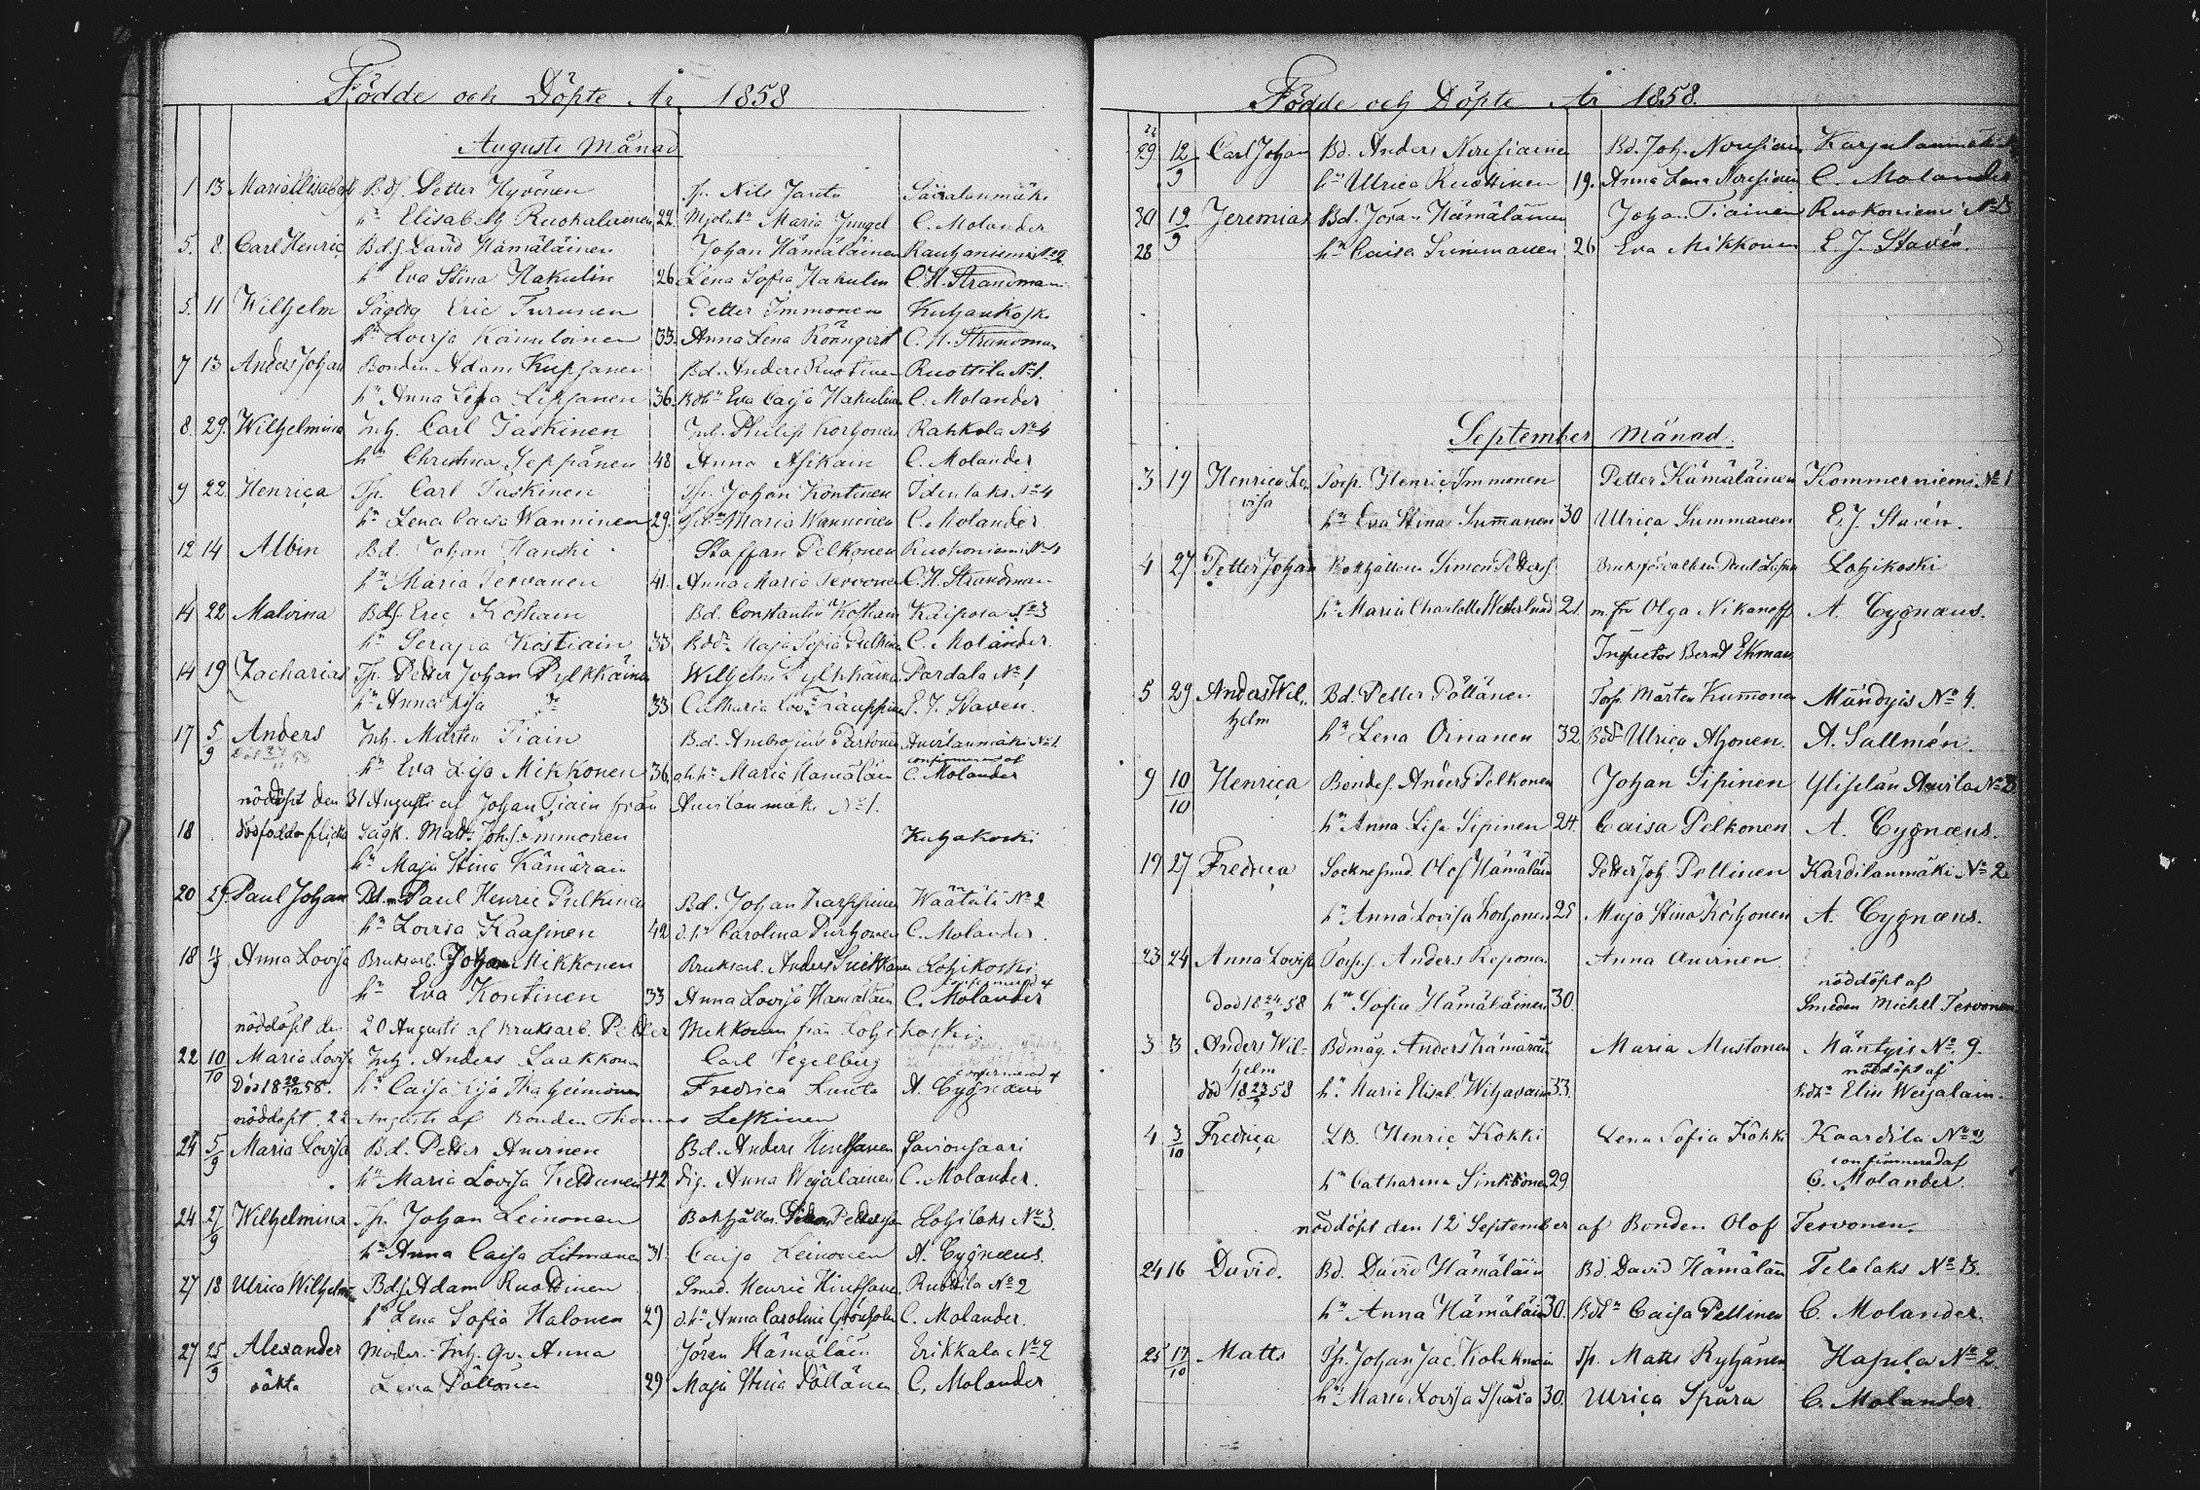 Födde och Döpte År 1858
Augusti Månad
1 13 Maria Elisabeth Bdf. Petter Hyvönen Tp. Nils Jantu
hu Elisabeth Ruokolainen 22. Maria Jungel C. Molander
5. 8. Carl Henric Bdf. David Hämäläinen Johan Hämäläinen Rauhaniemi No 2
hu Eva Stina Hakulin 26 Lena Sofia Hakulin C. H. Strandman
5. 11 Wilhelm Eric Turunen Petter Immonen Kuhankoski
hu Lovisa 33. Anna Lena Rönnqvist C. H. Strandman
7 13 Anders Johan Bonden Adam Bd. Anders Ruottinen Ruottila No 1.
hu Anna Lisa 36. Bdhu Eva Caisa Hakulin C. Molander
8. 29. Wilhelmina Inh. Carl Taskinen Inh. Philip Korhonen Rahkola No 4
hu Christina Seppänen 48 Anna Asikain C. Molander
9 22 Henrica Tp. Carl Taskinen Tp. Johan Kontinen No 4
hu Lena Caisa Wanninen 29. Maria Wanninen C. Molander
12 14 Albin Bd. Johan Hanski Staffan Pelkonen Ruokoniemi No 4
hu Maria Tervonen 41. Anna Maria Tervonen C. H. Strandman
14 22 Malvina Bdf. Eric Kostiain Bd. Constantin Kostiain No 3
hu Serafia Kostiain 33 Maja Sofia C. Molander
14 19 Zacharias Tp. Petter Johan Pylkkäinen Wilhelm Pylkkäinen Pardala No 1
hu Anna Lisa 33 Catharina Lov. Kauppinen E. J. Staven.
17 5/9 Anders Inh. Mårten Tiain Bd. Ambrosius Partonen Auvilanmäki No 1.
hu Eva Lisa Mikkonen 36 d. hu Maria Hämäläin confirmerad af C. Molander
nöddöpt den 31 Augusti af Johan Tiain från Auvilanmäki No 1.
18 dödfödd flicka Sågk. Matts Joh.s. Immonen Kuhakoski
hu Maja Stina Kämäräin
20 29. Paul Johan Bd. Paul Henric Pulkinen Bd. Johan Karppinen Wäätälä No 2
hu Lovisa Kaasinen 42 d. hu Carolina Purhonen C. Molander
18 4/9 Anna Lovisa Bruksarb. Johan Mikkonen Bruksarb. Anders Suikkanen Lohikoski
hu Eva Kontinen 33 Anna Lovisa Hämäläin confirmerad af C. Molander
nöddöpt den 20 Augusti af Bruksarb. Petter Mikkonen från Lohikoski
22 10/10 Maria Lovisa Inh. Anders Laakkonen Carl Segelberg
Död 18 58. hu Caisa Lisa Fredrica Lunta confirmerad af A. Cygnæus
nöddöpt 22 Augusti af Bonden Thomas Leskinen
24 5/9 Maria Lovisa Bd. Petter Auvinen Bd. Anders Hintsanen Savionsaari
hu Maria Lovisa Kettunen 42 Pig. Anna Weijalainen C. Molander.
24 27/9 Wilhelmina Tp. Johan Leinonen Bokhållar. Simon Pettersson Lohilaks No 3.
hu Anna Caisa Litmanen 31. Caisa Leinonen A. Cygnæus.
27 18 Ulrica Wilhelmina Bdf. Adam Ruottinen Smed. Henric Hintsanen Ruottila No 2
hu Lena Sofia Halonen 29 d. hu Anna Carolina C. Molander.
27 25/9 Alexander Moder. Inh. Qv. Anna Jöran Hämäläin Erikkala No 2
oäkta Lena Pöllänen 29 Maja Stina Pöllänen C. Molander
Födde och Döpte År 1858.
29 12/9 Carl Johan Bd. Anders Nousiainen Bd. Joh. Nousiain
hu Ulrica Ruottinen 19. Anna Lena Nousiain C. Molander
30 19/9 Jeremias Bd. Jöran Hämäläinen Johan Tiainen Ruokoniemi No 3
28 hu Caisa Summanen 26 Eva Mikkonen E. J. Stavén.
September Månad.
3 19 Henrica Lovisa Torp. Henric Immonen Petter Kämäläinen Kommerniemi No 1
hu Eva Stina Summanen 30 Ulrica Summanen E. J. Stavén.
4 27. Petter Johan Bokhållaren Simon Petters. Lohikoski
hu Maria Charlotta Westerlund 21. m. fru Olga Nikaneff A. Cygnæus.
Inspector Bernt Ekman
5 29 Anders Wilhelm Bd. Petter Pöllänen Torp. Mårten Kummonen Mändyis No 4.
hu Lena Oinanen 32 Ulrica Ahonen. A. Sallmén.
9 10/10 Henrica Bondes. Anders Pelkonen Johan Sipinen
hu Anna Lisa Sipinen 24. Caisa Pelkonen A. Cygnæus.
19 27 Fredrica Socknesmed. Olof Hämäläin Petter Joh. Pellinen Kardilanmäki No 2
hu Anna Lovisa Korhonen 25 Maja Stina Korhonen A. Cygnæus.
23 24 Anna Lovisa Torps. Anders Reponen Anna Auvinen
Död 18 24/9 58 hu Sofia Hämäläinen 30. nöddöpt af Smeden Michel Tervonen
3 3 Anders Wilhelm Bdmåg. Anders Kämäräin Maria Mustonen Mäntyis No 9.
död 18 23/9 58 hu Maria Elisab. Wihavain 33. nöddöpt af Bdhu Elin Weijalain.
4. 3/10 Fredrica LB. Henric Kokki Lena Sofia Kokki Kaardila No 2
hu Catharina Sinkkonen 29 confirmerad af C. Molander.
nöddöpt den 12 September af Bonden Olof Tervonen.
24 16 David. Bd. David Hämäläin Bd. David Hämäläin Telalaks No 3.
hu Anna Hämäläin 30. Bdhu Caisa Pellinen C. Molander.
25 17/10 Matts Tp. Johan Jac. Kolehmain Tp. Matts Ryhänen Hapula No 2.
hu Maria Lovisa Spåra 30. Ulrica Spåra C. Molander.